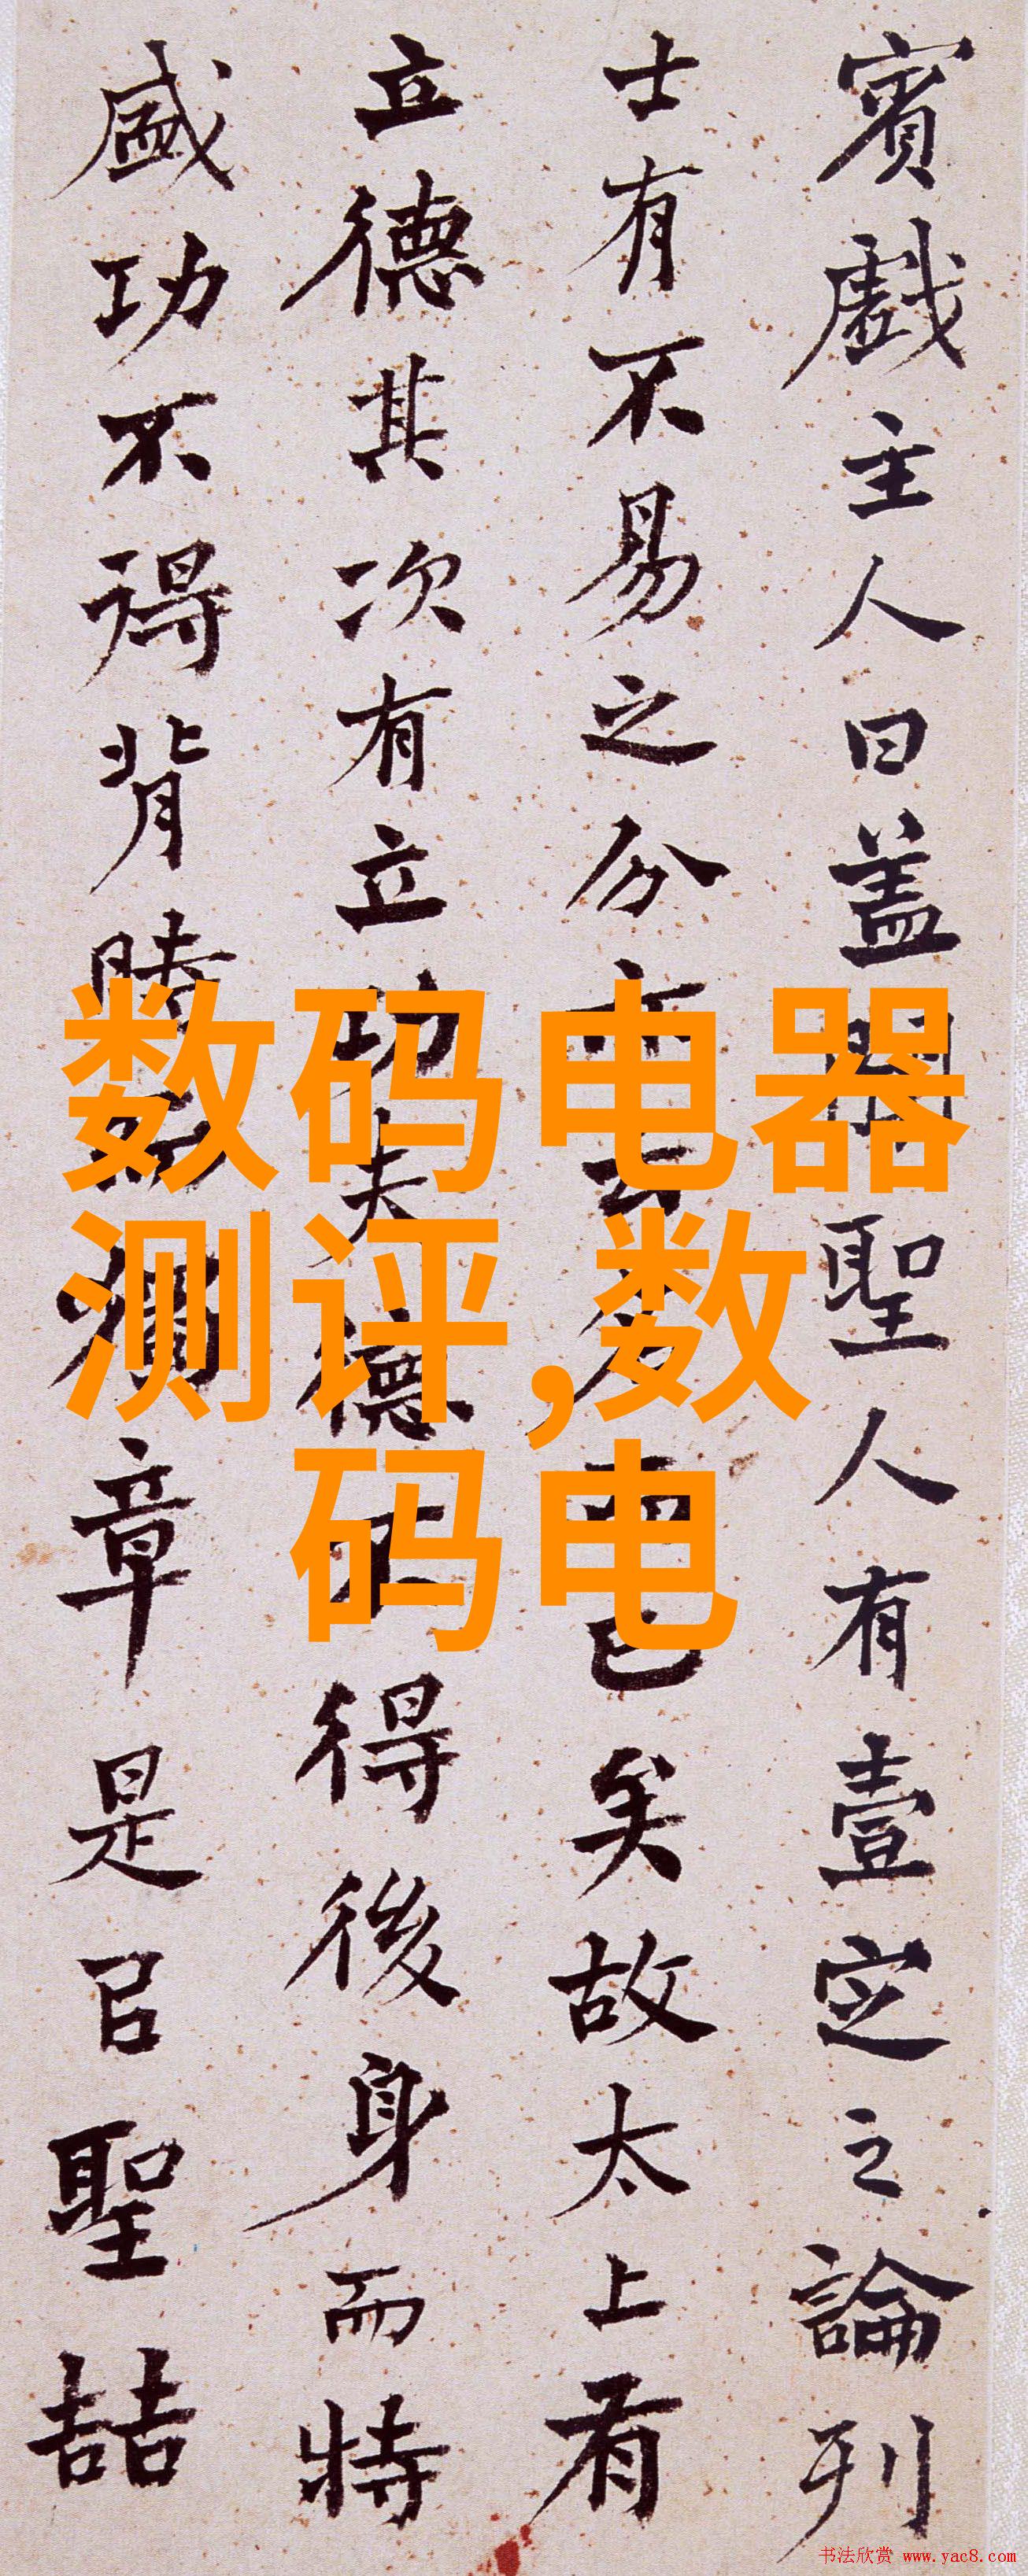 賓戲主人曰盖聞聖人有壹定之論列
士有不易之分亦云名而已矣故太上有
立德其次有立功夫德不得後身而特
盛功不得背時而獨章是㠯聖喆
数码电器
测评,数
码电
书法欣赏 www.yac8.com